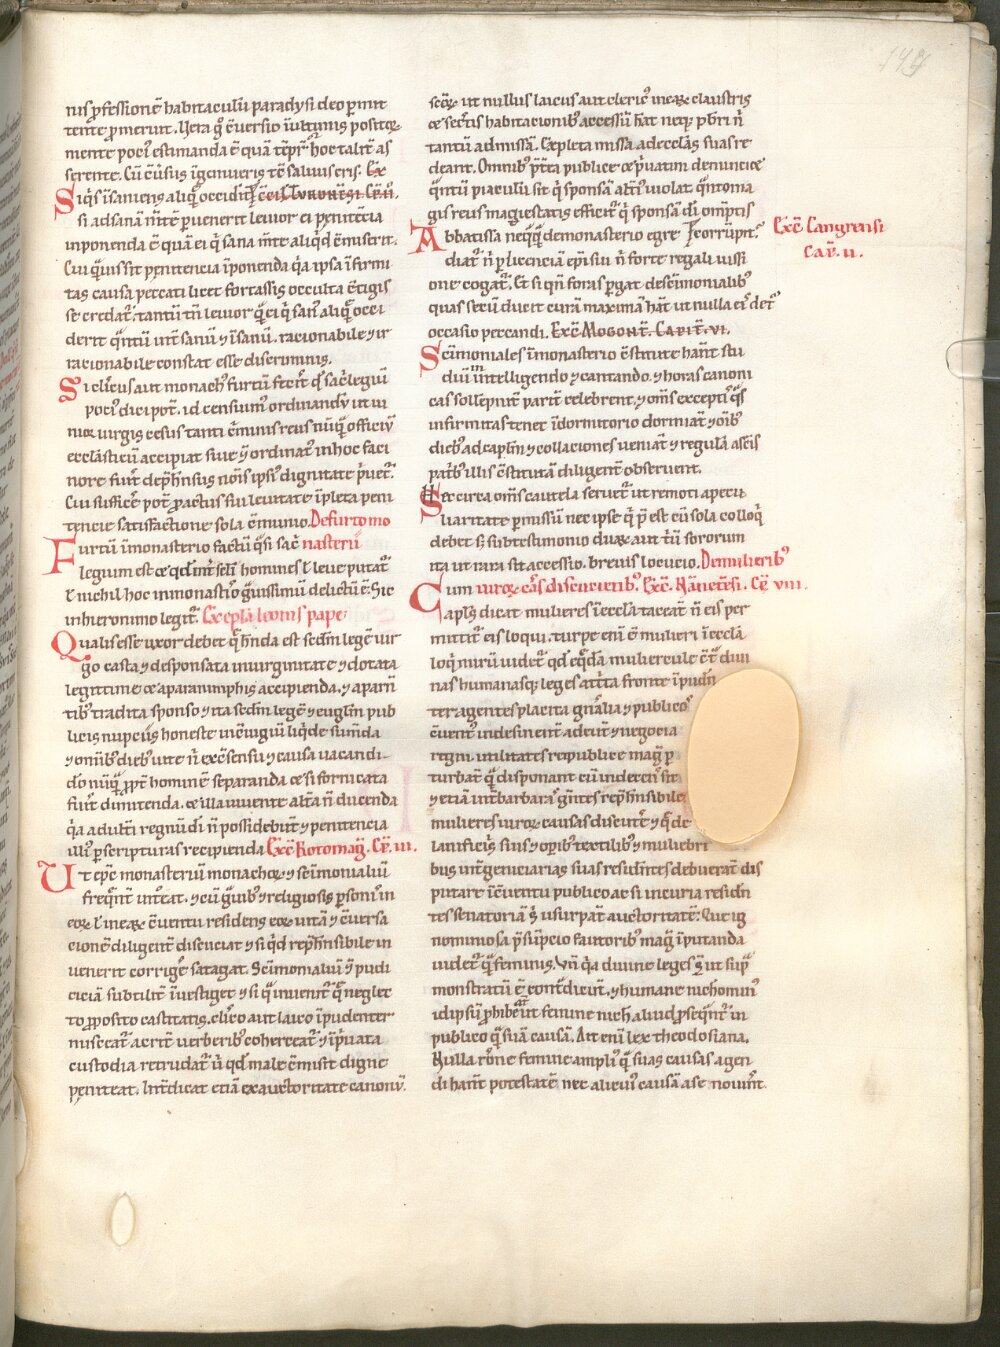 nis ꝓfessionē habitaculū paradysi deo ꝑmit
tente ꝓmeruit. Uera ḡ ꝯ̄uersio ī ultimis positoꝝ
mente poci᷒ estimanda ē quā tēpr̄. hoc talit᷒ as
serente. Cū ꝯ̄uersus īgemueris tc̄ saluus eris. Ex
Siq̇s īsaniens aliq̄ occidit ꝯcil. Turonēsi. Cap̄. ii.
si ad sanā mn̄tē ꝑuenerit leuior ei penitēcia
inponenda ē quā ei q̇ sana mn̄te aliq̇d ꝯ̄miserit.
Cui q̄uis sit penitencia īponenda q̇a ipsa īfirmi
tas causa peccati licet fortassis occulta ꝯ̄tigis
se credat᷒. tantū tn̄ leuior q̄ ei q̇ san᷒ aliq̄ occi
derit q̄ntū int̄ sanū ⁊ īsanū. racionabile ⁊ ir
racionabile constat esse discriminis.
Si cleric᷒ aut monach᷒ furtū fecerit qd̄ sac̄legiū
poci᷒ dici pot̄. id censuim᷒ ordinandū ut iu
nior uirgis cesus tanti c̄minis reus nūq̄ officiū
ecclāsticū accipiat siue ⁊ ordinat᷒ in hoc faci
nore fuīt dep̄hn̄sus nōis ipsi᷒ dignitate p̄uet᷒.
Cui sufficē pot̄ ꝓ act᷒ sui leuitate īpleta peni
tencie satisfactione sola ꝯ̄munio. De furto mo
Furtū ī monasterio factū q̄si sac̄ nasterii
legium est ꝯ qd̄ int̄ sclī homines ł leue putat᷒
ł nichil hoc in monastio ḡuissimū delictū ē. Sic
in hieronimo legit᷒. Ex epl̄a leonis pape.
Qualis esse uxor debet q̄ hn̄da est scd̄m legē uir
go casta ⁊ desponsata in uirginitate ⁊ dotata
legittime ⁊ a paranimphis accipienda. ⁊ a parn̄
tib᷒ tradita sponso ⁊ ita scd̄m legē ⁊ euglīm pub
licis nupciis honeste in ꝯ̄iugiū liq̇de sumēda
⁊ omīb᷒ dieb᷒ uite n̄ ex ꝯ̄sensu ⁊ causa uacandi
dō nūq̄ ꝓpt̄ hominē separanda ⁊ si fornicata
fuīt dimittenda. ⁊ illa uiuente alt̄a n̄ ducenda
q̇a adult̄i regnū dī n̄ possidebūt ⁊ penitencia
illi᷒ ꝑ scripturas recipienda. Ex ꝯ̄c Rotomag̃. Cap̄. iii.
Ut epc̄ monasteriū monachoꝝ ⁊ sc̄imonialiū
freq̄nt̄ int̄eat. ⁊ cū ḡuib᷒ ⁊ religiosis ꝑsonis in
eoꝝ ł in eaꝝ ꝯ̄uentu residens eoꝝ uitā ⁊ ꝯ̄uersa
cionē diligent̄ discuciat ⁊ si q̇d rep̄hn̄sibile in
uenerit corrigē satagat. Sc̄imonialiū ⁊ pudi
ciciā subtilit̄ īuestiget ⁊ si q̄ inuenit᷒ q̄ neglec
to ꝓposito castitatis. cl̄ico aut laico īpudenter
misceat᷒ acrit̄ uerberib᷒ coherceat᷒ ⁊ ī ṗuata
custodia retrudat᷒ ū qd̄ male ꝯ̄misit digne
peniteat. Int̄dicat etiā ex auctoritate canonū
sc̄oꝝ. ut nullus laicus aut cleric᷒ in eaꝝ claustris
⁊ sec̄tis habitacionib᷒ accessū hāt neq̨ pb̄ri n̄
tantū ad missā. Cōpleta missa ad ecclās suas re
deant. Omnib᷒ p̄t̄ea publice ⁊ ṗuatim denuncie
q̄ntū piaculū sit q̇ sponsā alt̄i᷒ uiolat. q̄nto ma
gis reus magiestatis efficit᷒ q̇ sponsā dī om̄ptis
Abbatissa neq̄q̄ de monasterio egre corrūpit.
diat᷒ n̄ ꝑ licenciā epī sui n̄ forte regali iussi
one cogat᷒. Et si qn̄ foras ꝑgat de sc̄imonialib᷒
quas secū ducit curā maximā hāt ut nulla eis det᷒
occasio peccandi. Ex ꝯ̄c Mogont̄. Capit̄. vi.
Sc̄imoniales ī monasterio ꝯ̄stitute hānt stu
diū in intelligendo ⁊ cantando. ⁊ horas canoni
cas sollēpnit̄ parit̄ celebrent. ⁊ oms̄ exceptis q̄s
infirmitas tenet ī dormitorio dormiāt ⁊ oīb᷒
dieb᷒ ad caplm̄ ⁊ collaciones ueniāt ⁊ regulā a sc̄is
patrib᷒ illis ꝯ̄stitutā diligent̄ obseruent.
Sit circa oms̄ cautela seruet᷒ ut remoti a pecu
liaritate ꝑmissū nec ipse q̇ p̄ est cū sola colloq̇
debet s; sub testimonio duaꝝ aut ṫū sororum
ita ut rara sit accessio. breuis locucio. De mulierib᷒
Cum uiroꝝ cās discucientib᷒. Ex ꝯ̄c. Nānetēsi. Cap̄ viii.
apls̄ dicat mulieres ī eccl̄a taceāt n̄ eis ꝑ
mittit᷒ eis loqui. turpe enī ē mulieri ī eccl̄a
loq̇ mirū uidet᷒ qd̄ q̄dā muliercule ꝯ̄t̄ diui
nas humanasq̨ leges at̄ta fronte īpudn̄
ter agentes placita gn̄alia ⁊ publicos
ꝯ̄uent᷒ indesinent̄ adeūt ⁊ negocia
regni. utilitates reipublice magis ꝑ
turbāt q̄ disponant cū indecēs sit
⁊ etiā int̄ barbaras gn̄tes rep̄hn̄sibile
mulieres uiroꝝ causas discut̄e ⁊ q̄ de
lanificiis suis ⁊ opib᷒ textilib᷒ ⁊ muliebri
bus int̄ geniciarias suas residn̄tes debuerāt dis
putare ī ꝯ̄uentu publico ac si in curia residn̄
tes senatoriā s̄ usurpāt auctoritatē. Que ig
nominiosa p̄sūpcio fautorib᷒ magis īputanda
uidet᷒ q̄ feminis. Vn̄ q̇a diuine leges s̄ ut sup̄
monstratū ē ꝯ̄t̄dicūt. ⁊ humane nichominus
id ipsū ꝓhibēt ut femine nich̄ aliud ꝓseq̄nt᷒ in
publico q̄ suā causā. Ait enī lex theodosiana.
Nulla rōne femine ampli᷒ q̄ suas causas agen
di hānt potestatē nec alicui᷒ causā a se nouīnt.
Ex ꝯ̄c Gangrensi
Cap̄. ii.
147